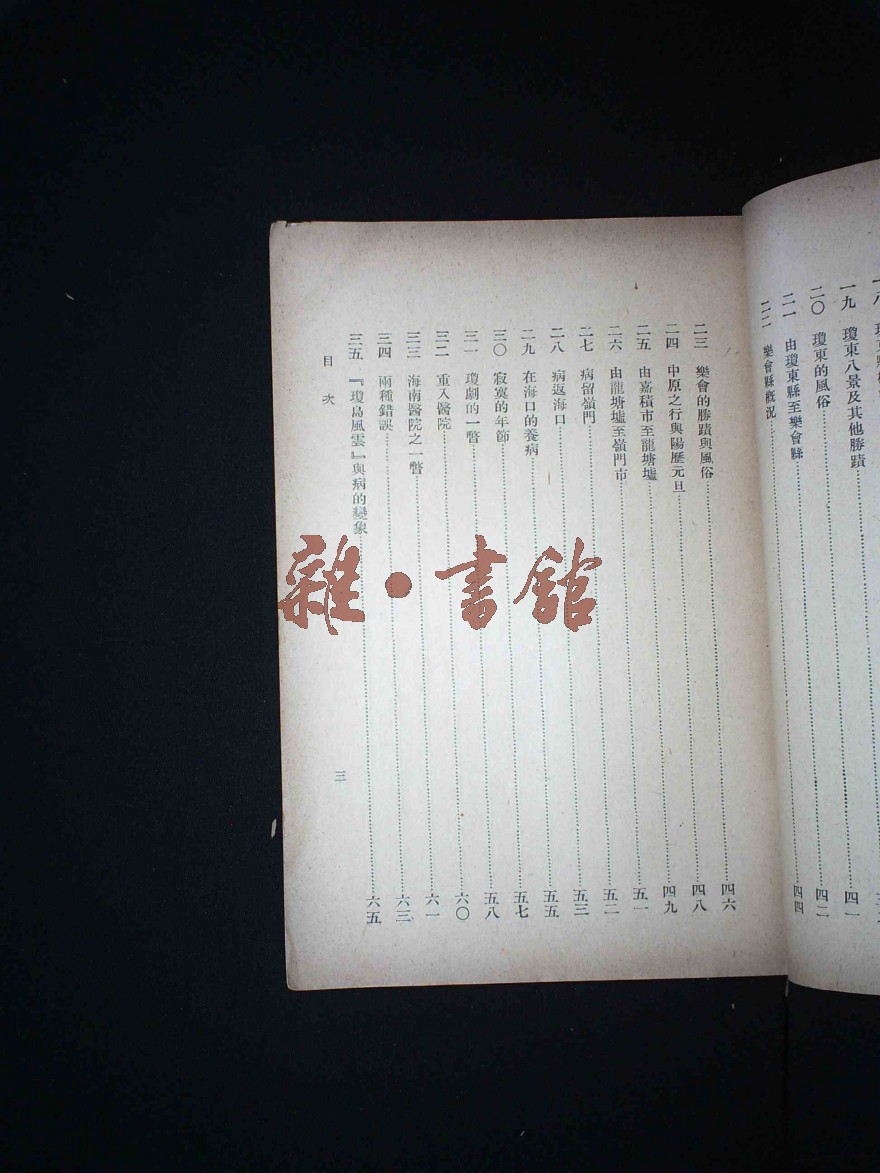 一九 瓊東八景及其他勝蹟……四一
二〇 瓊東的風俗……四二
二一 由瓊東縣至樂會縣……四四
二二 樂會縣概況
二三 樂會的勝蹟與風俗……四六
二四 中原之行與陽歷元旦……四八
二五 由嘉積市至龍塘墟……四九
二六 由龍塘墟至嶺門市……五一
二七 病留嶺門……五二
二八 病返海口……五三
二九 在海口的養病……五五
三〇 寂寞的年節……五七
三一 瓊劇的一瞥……五八
三二 重入醫院……六〇
三三 海南醫院之一瞥……六一
三四 兩種錯誤……六三
三五 『瓊島風雲』與病的變象……六五
目次
三
雜·書館